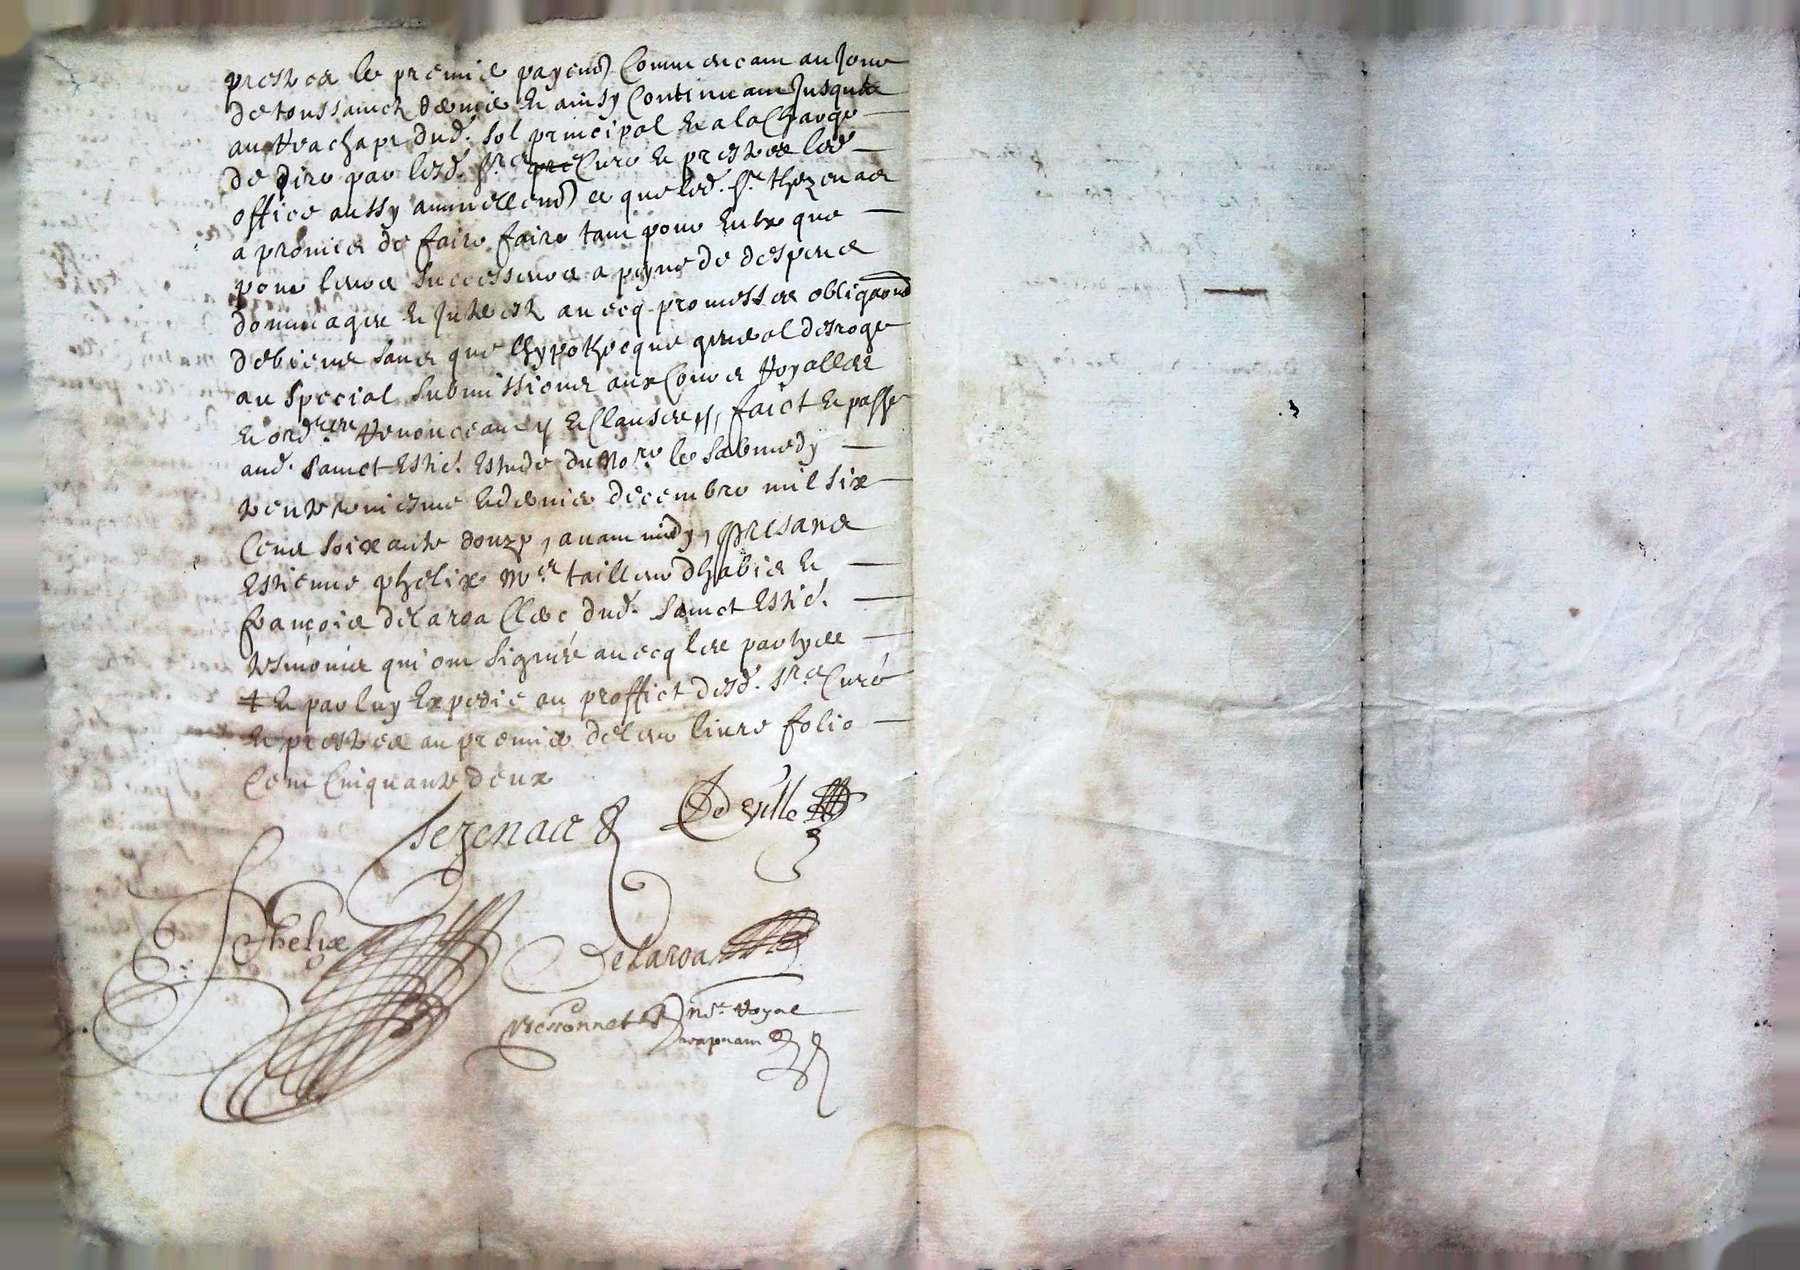 prestres le premier payemt Commencant au Jour
de toussainctz dernier Et ainsy Continuant Jusques
au Reachapt dud. sol principal Et a la Charge
de dire par lesd. srs Curé Et prestres led.
office aussy annuellemt ce que led. sr thezenas
a promis de faire faire tant pour Entre que
pour leurs successeurs a peyne de despens
dommages Et Interestz auecq promesses obligaons
de biens sans que lhypothecque gneral desroge
au special submissions aux Cours Royalles
Et ordres Renonceans Et Clauses faict Et passé
aud. sainct Estie. Estude du Nore le sabmedy
trente uniesme Et dernier decembre mil six
Cens soixante douze, auant midy, presans
Estienne phelix Mer tailleur dhabis Et
françois delaroa Clerc dud. sainct Estie.
tesmoins qui ont signés auecq les partyes
Et par luy Expedié au proffict desd. srs Curé
Et prestres au premier de leur liure folio
Cent Cinquante deux
Deville
Phelix
Delaroa
nore Royal